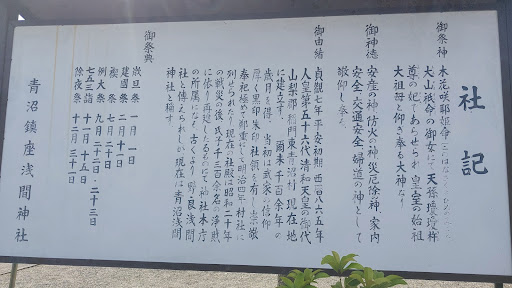 社記
御祭神 木花咲耶姫命(このはなさくやひめのみこと)
大山祇命の御女にて天孫瓊瓊杵
尊の妃であらせられ皇室の始祖
大祖母と仰ぎ奉る大神なり
御神徳
安産の神防火の神災厄除の神家内
安全、交通安全、婦道の神として
敬仰し奉る
御由緒
貞観七年(平安初期 西暦八六五年
人皇第五十六代清和天皇の御代
山梨郡 青沼村 現在地
に建立す。爾来千百余年の
歳月を得、当初より武家の信仰
厚く黒印朱印社領を有し崇敬
奉祀極めて鄭重にして明治四年村社に
列せられたり。現在の社殿は昭和二十年
の戦災の後、氏子千三百余名の浄財
に依り再建したるものにて神社本庁
の所属になる。古くより 浅間神
社と傳えられしが現在は青沼浅間
神社と稱す。
御祭典
歳旦祭 一月一日
建國祭 二月十一日
例大祭 九月二十二日・二十三日
七五三詣 十一月十五日
除夜祭 十二月三十一日
青沼鎮座浅間神社